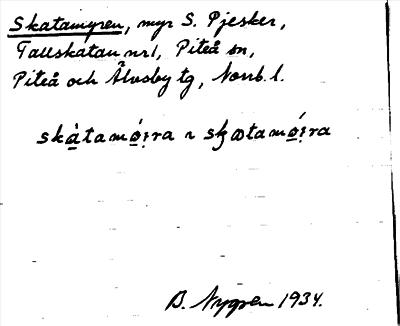 Skatamyren, myr S. Pjesker,
Tallskatan nr 1, Piteå sn,
Piteå och Älvsby tg, Norrb. l.
skàtamó̤i̤ra ~ skætamó̤i̤ra
B. Nygren 1934.